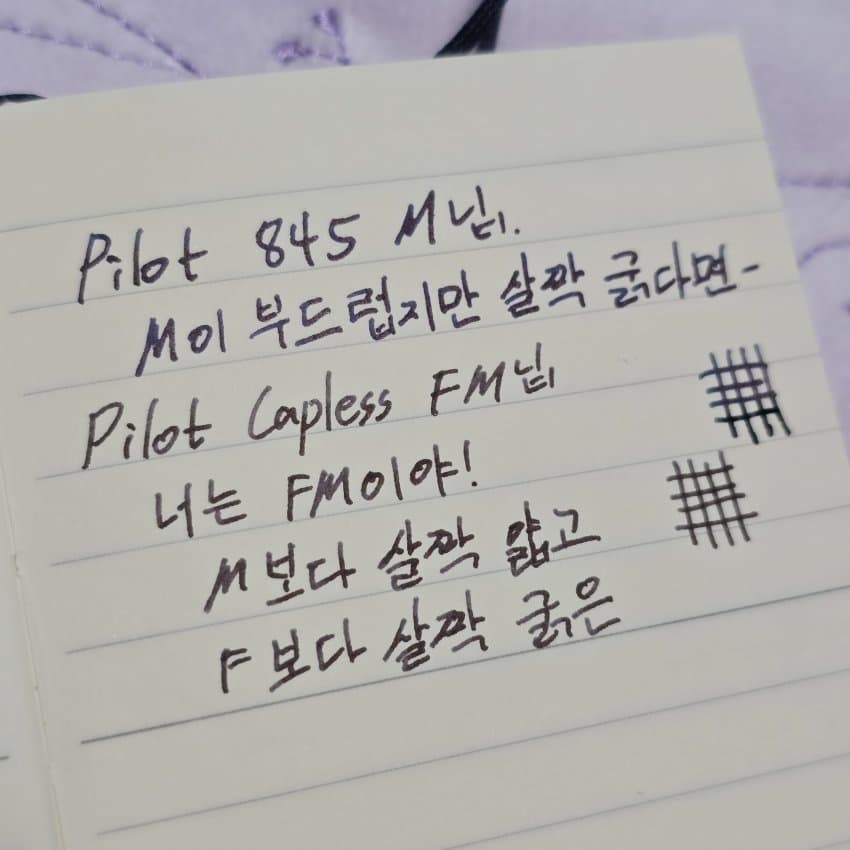 Pilot 845 M닙.
M이 부드럽지만 살짝 굵다면-
Pilot Capless FM닙
너는 FM이야!
M보다 살짝 얇고
F보다 살짝 굵은